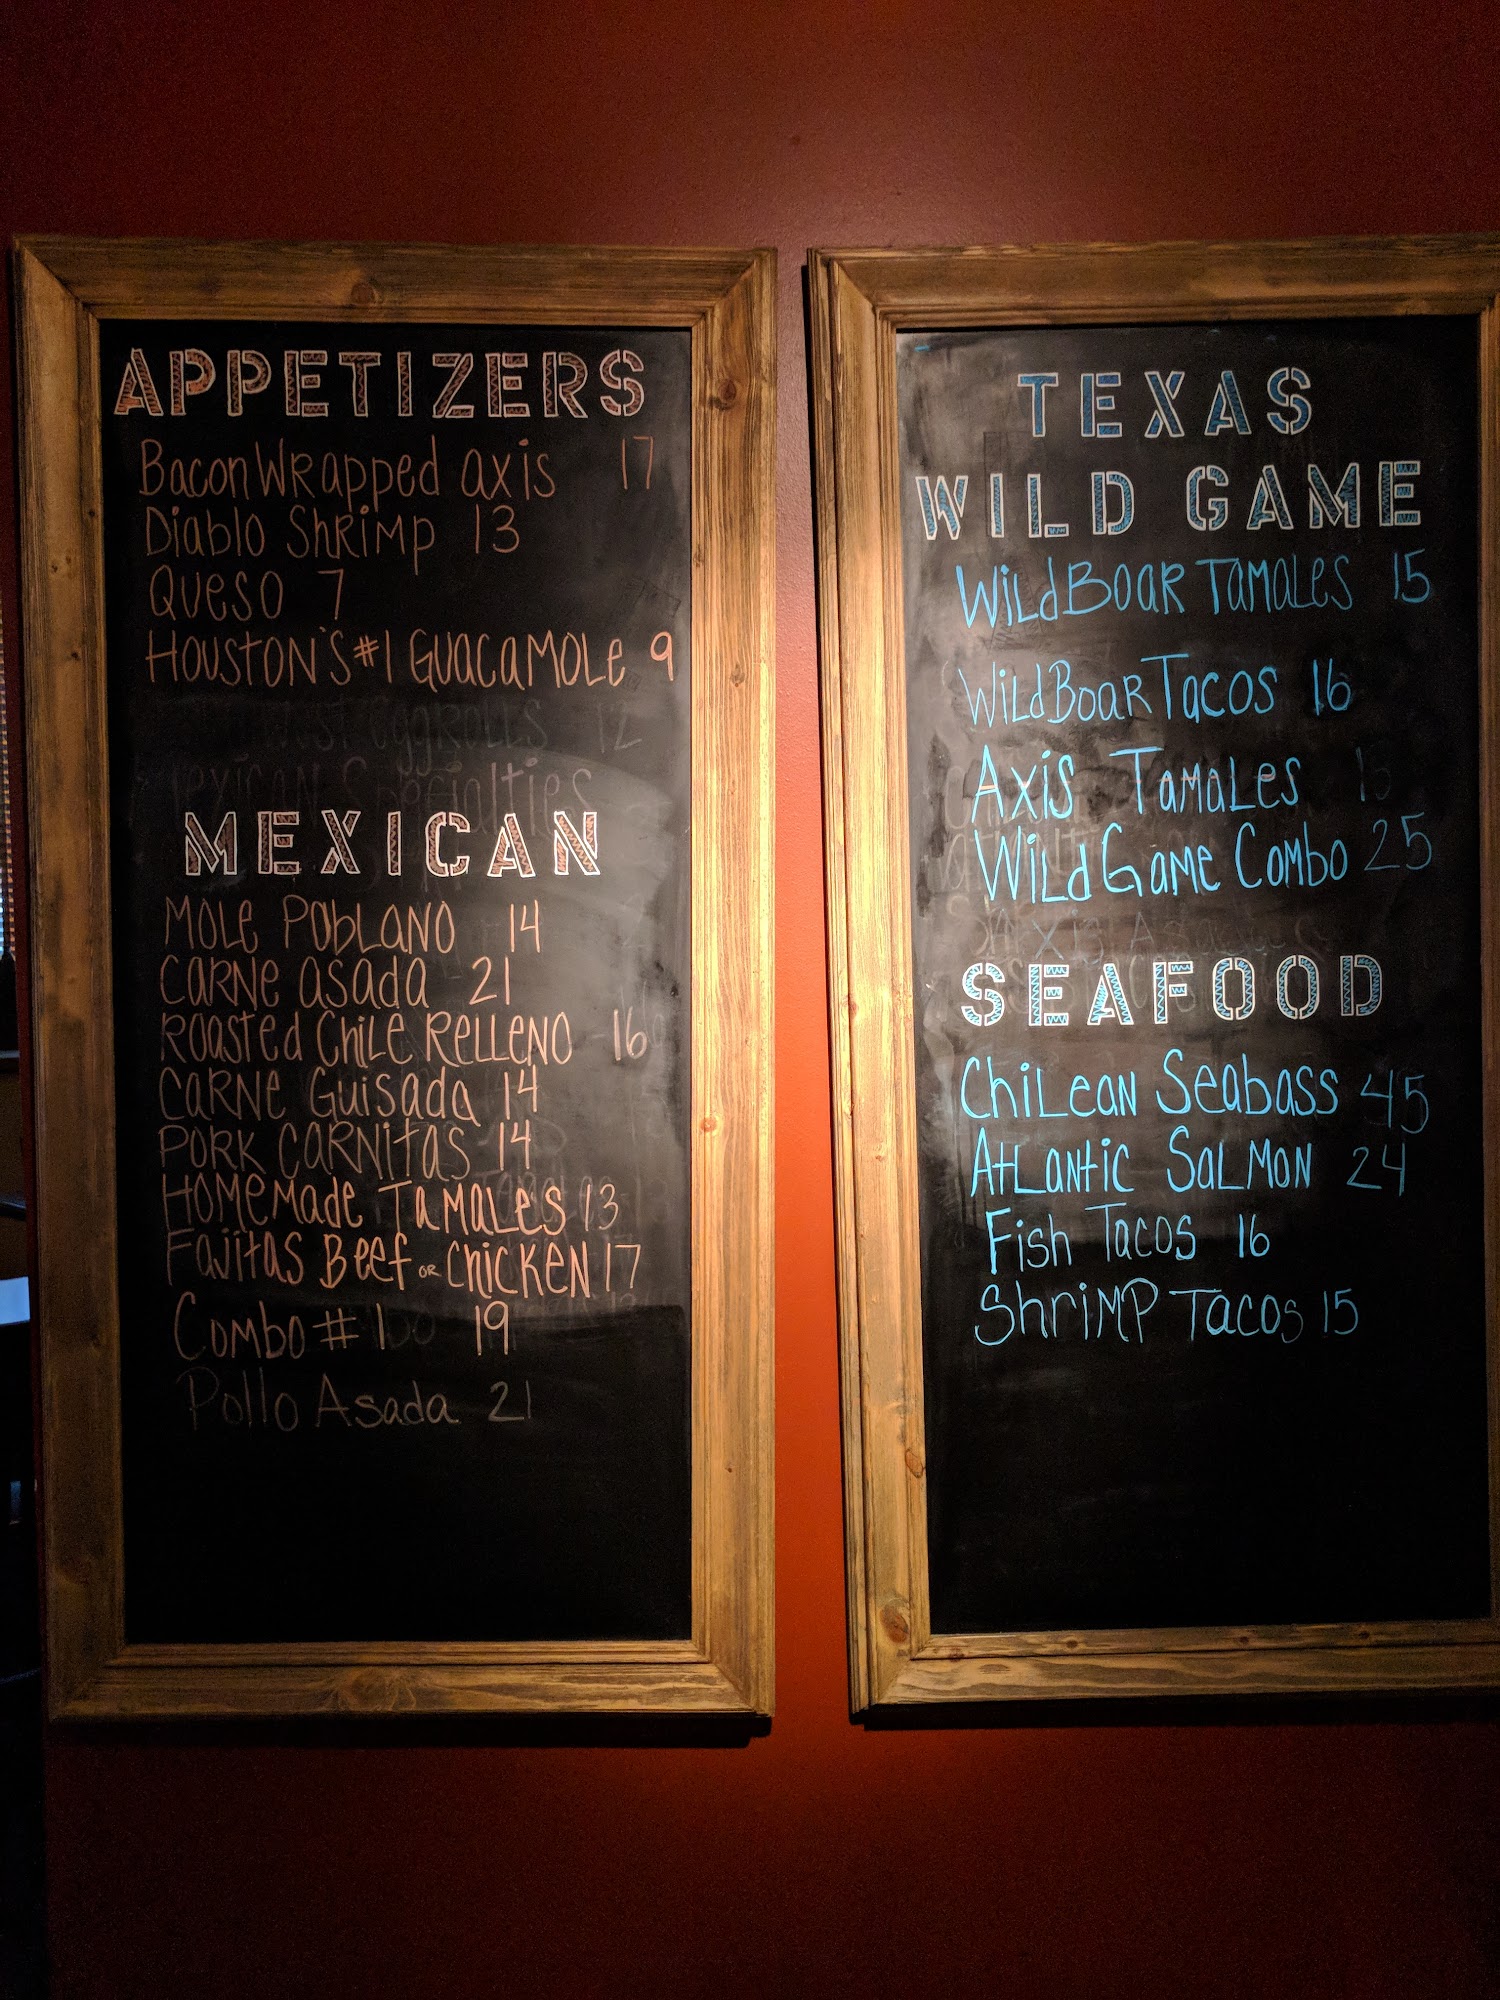 APPETIZERS
Bacon Wrapped axis 17
Diablo Shrimp 13
Queso 7
Houston's #1 Guacamole 9
Eggrolls 12
Mexican Specialties
MEXICAN
Mole Poblano 14
Carne asada 21
Roasted Chile Relleno 16
Carne Guisada 14
Pork Carnitas 14
Homemade Tamales 13
Fajitas Beef or Chicken 17
Combo #1 19
Pollo Asada 21
TEXAS
WILD GAME
Wild Boar Tamales 15
Wild Boar Tacos 16
Axis Tamales 15
Wild Game Combo 25
SEAFOOD
Chilean Seabass 45
Atlantic Salmon 24
Fish Tacos 16
Shrimp Tacos 15